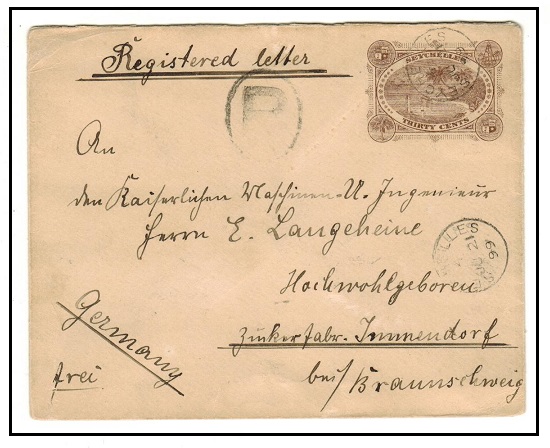 Registered letter
SEYCHELLES
THIRTY CENTS
R
An
den Kaiserlichen Maschinen-U. Ingenieur
Herrn E. Langeheine
Hochwohlgeboren
Zuckerfabr. Immendorf
bei/Braunschweig
Germany
frei